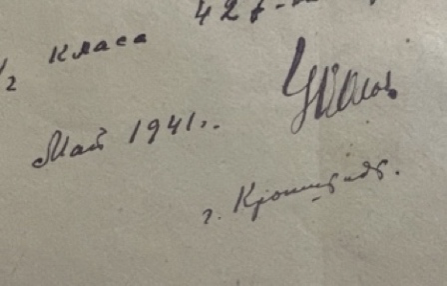 42
/2 класа
Май 1941г.
г. Кронштадт.